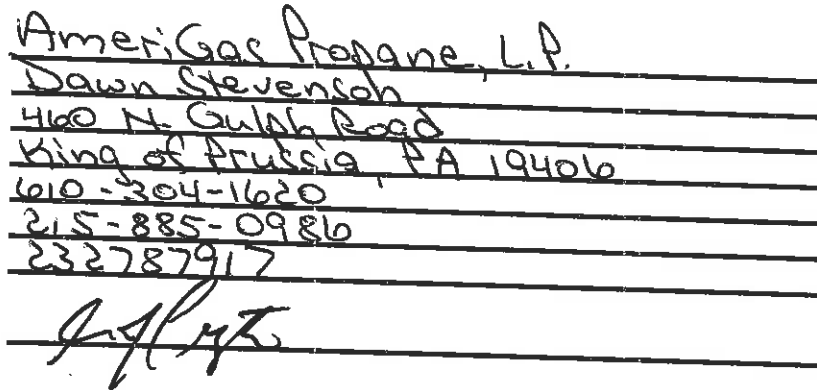 AmeriGas Propane, L.P.
Dawn Stevenson
460 N. Gulph Road
King of Prussia, PA 19406
610-304-1620
215-885-0986
232787917